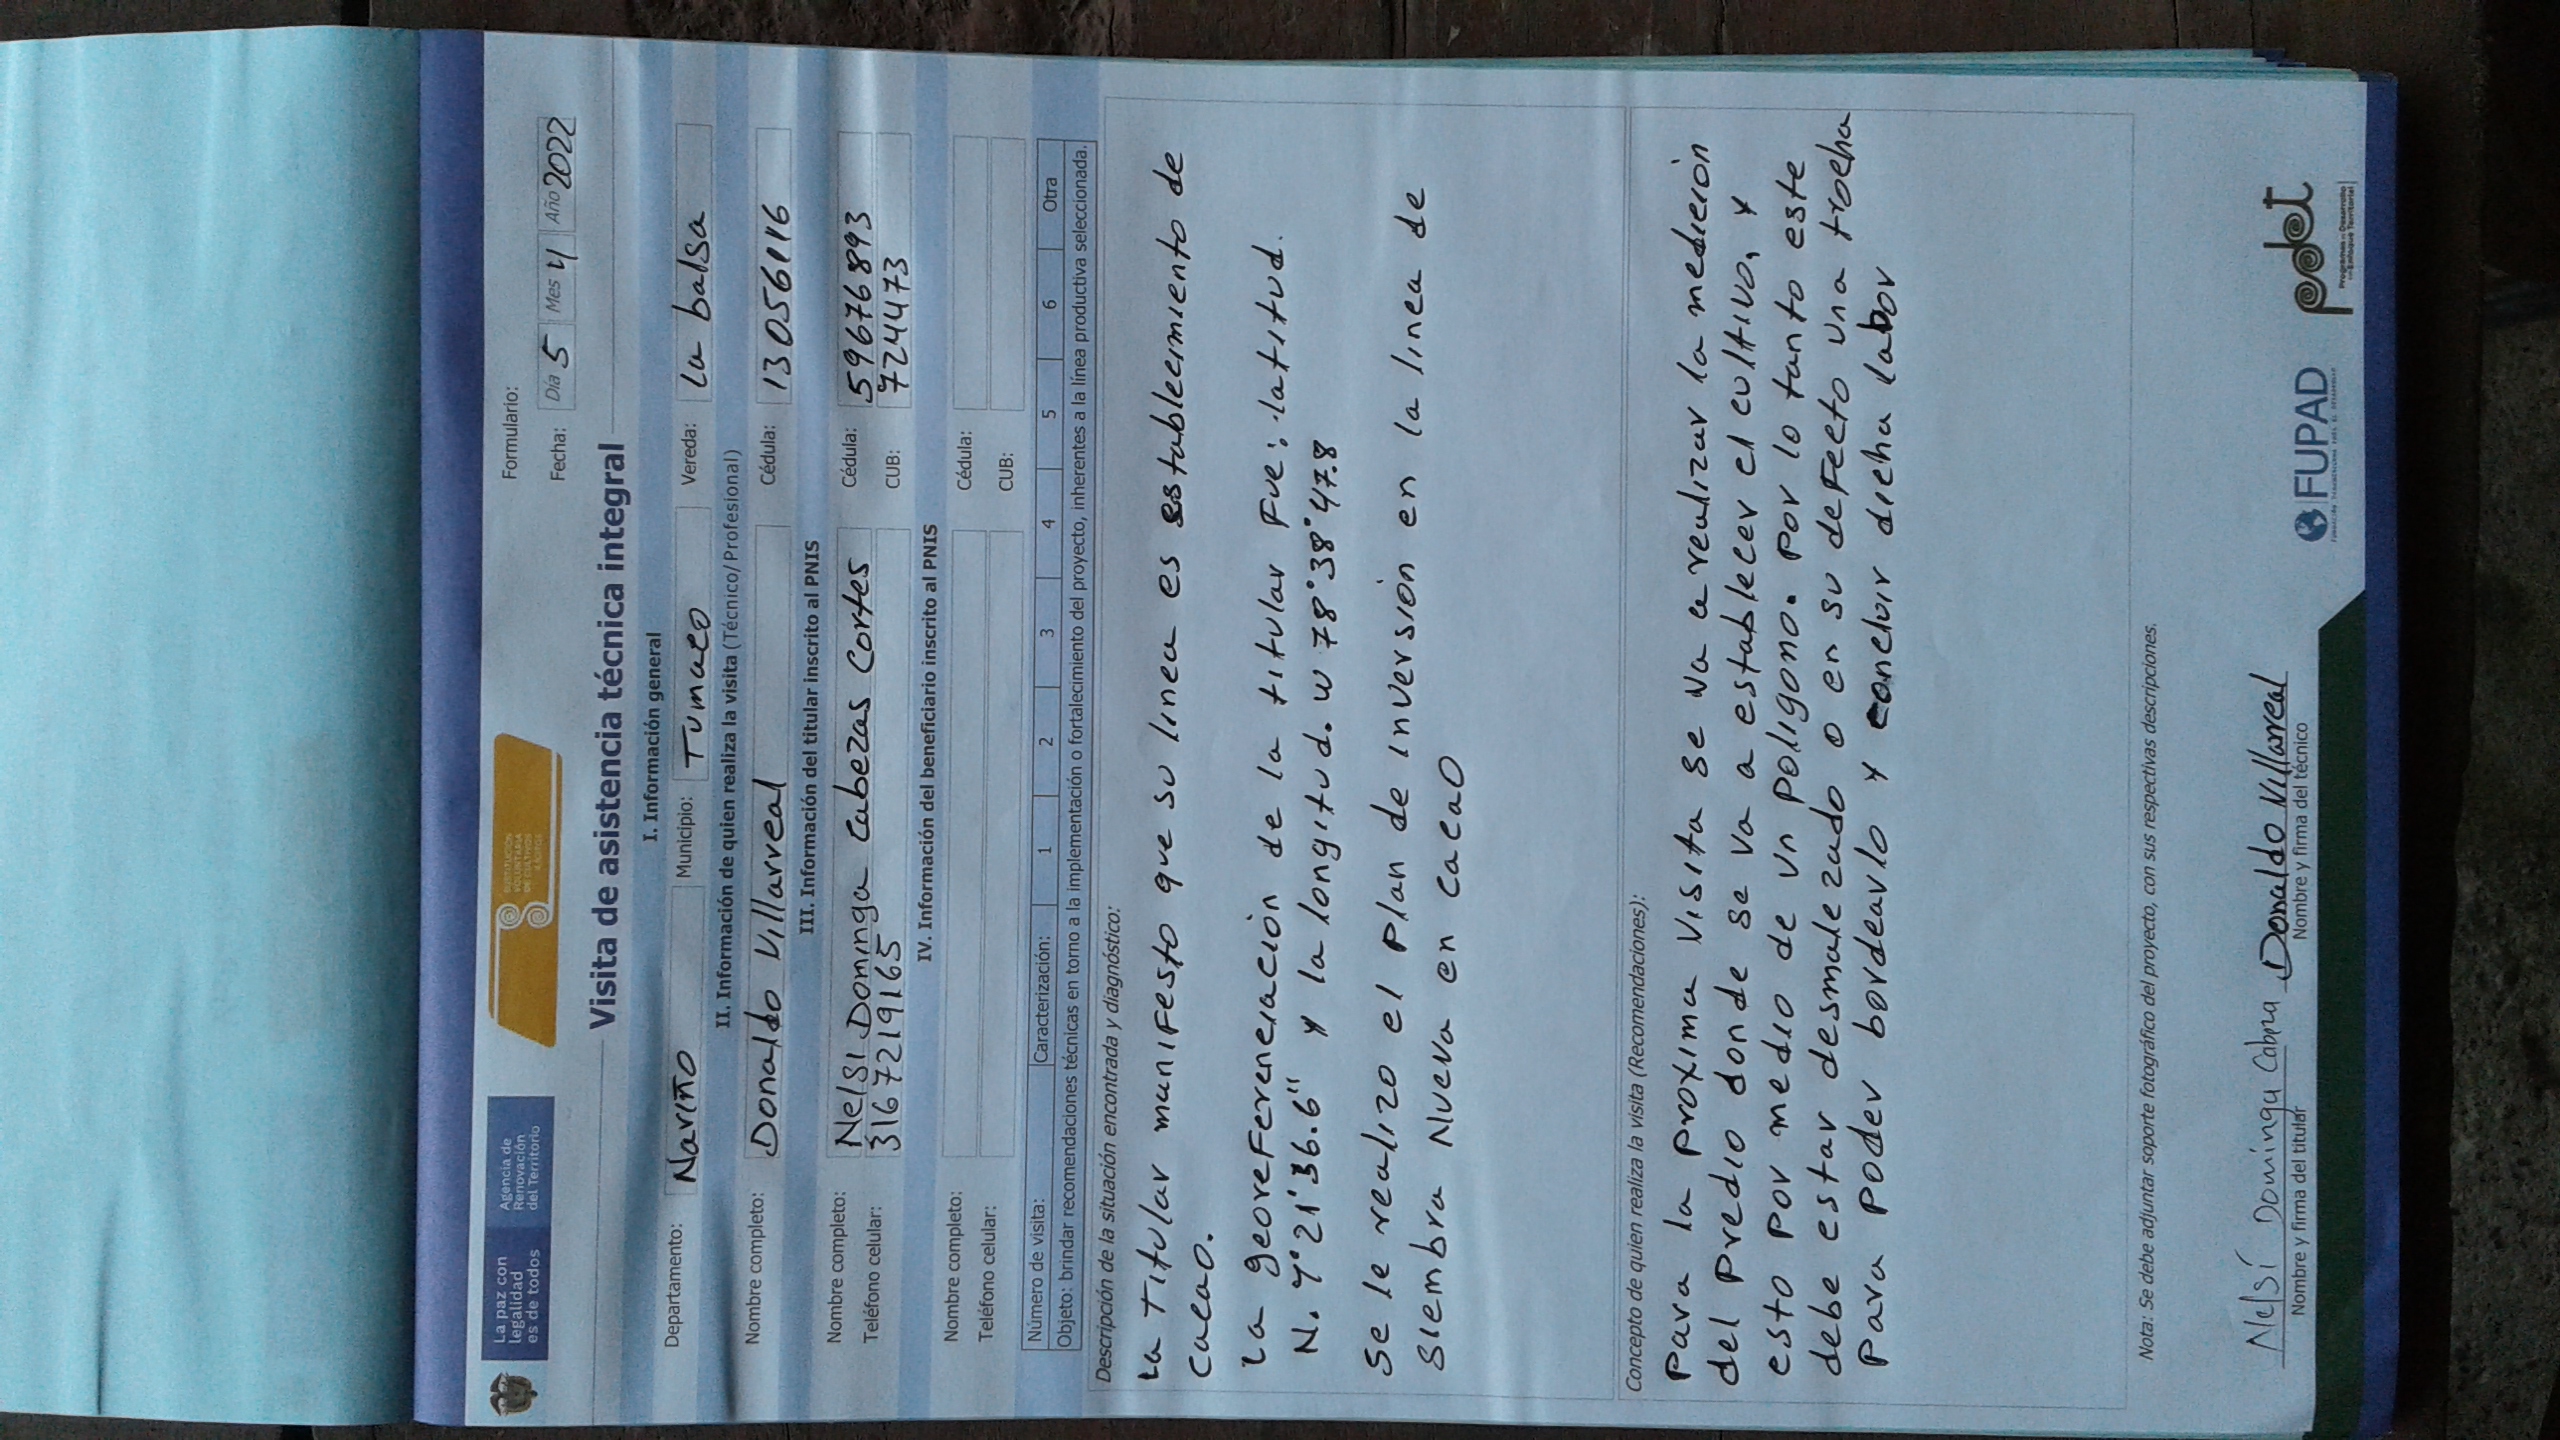 La paz con
legalidad
es de todos
Agencia de
Renovación
del Territorio
SUSTITUCIÓN
VOLUNTARIA
DE CULTIVOS
ILÍCITOS
Formulario:
Fecha: Día 5 Mes 4 Año 2022
Visita de asistencia técnica integral
I. Información general
Departamento: Nariño Municipio: Tumaco Vereda: La balsa
II. Información de quien realiza la visita (Técnico/Profesional)
Nombre completo: Donaldo Villarreal Cédula: 13056116
III. Información del titular inscrito al PNIS
Nombre completo: Nelsi Dominga Cabezas Cortes Cédula: 59676893
Teléfono celular: 3167219165 CUB: 7244473
IV. Información del beneficiario inscrito al PNIS
Nombre completo: Cédula:
Teléfono celular: CUB:
Número de visita: Caracterización: 1 2 3 4 5 6 Otra
Objeto: brindar recomendaciones técnicas en torno a la implementación o fortalecimiento del proyecto, inherentes a la línea productiva seleccionada.
Descripción de la situación encontrada y diagnóstico:
La Titular manifesto que su linea es establecimiento de
cacao.
La georeferenciación de la titular Fue: latitud.
N. 1°21'36.6" y la longitud. W 78°38°47.8
Se le realizo el plan de inversión en la linea de
Siembra Nueva en cacao
Concepto de quien realiza la visita (Recomendaciones):
Para la proxima visita se va a realizar la medición
del predio donde se va a establecer el cultivo, y
esto por medio de un poligono. Por lo tanto este
debe estar desmalezado o en su defecto una trocha
Para poder bordearlo y concluir dicha labor
Nota: Se debe adjuntar soporte fotográfico del proyecto, con sus respectivas descripciones.
Nelsi Dominga Cabza Donaldo Villarreal
Nombre y firma del titular Nombre y firma del técnico
FUPAD
pdet
Programas de Desarrollo
con Enfoque Territorial